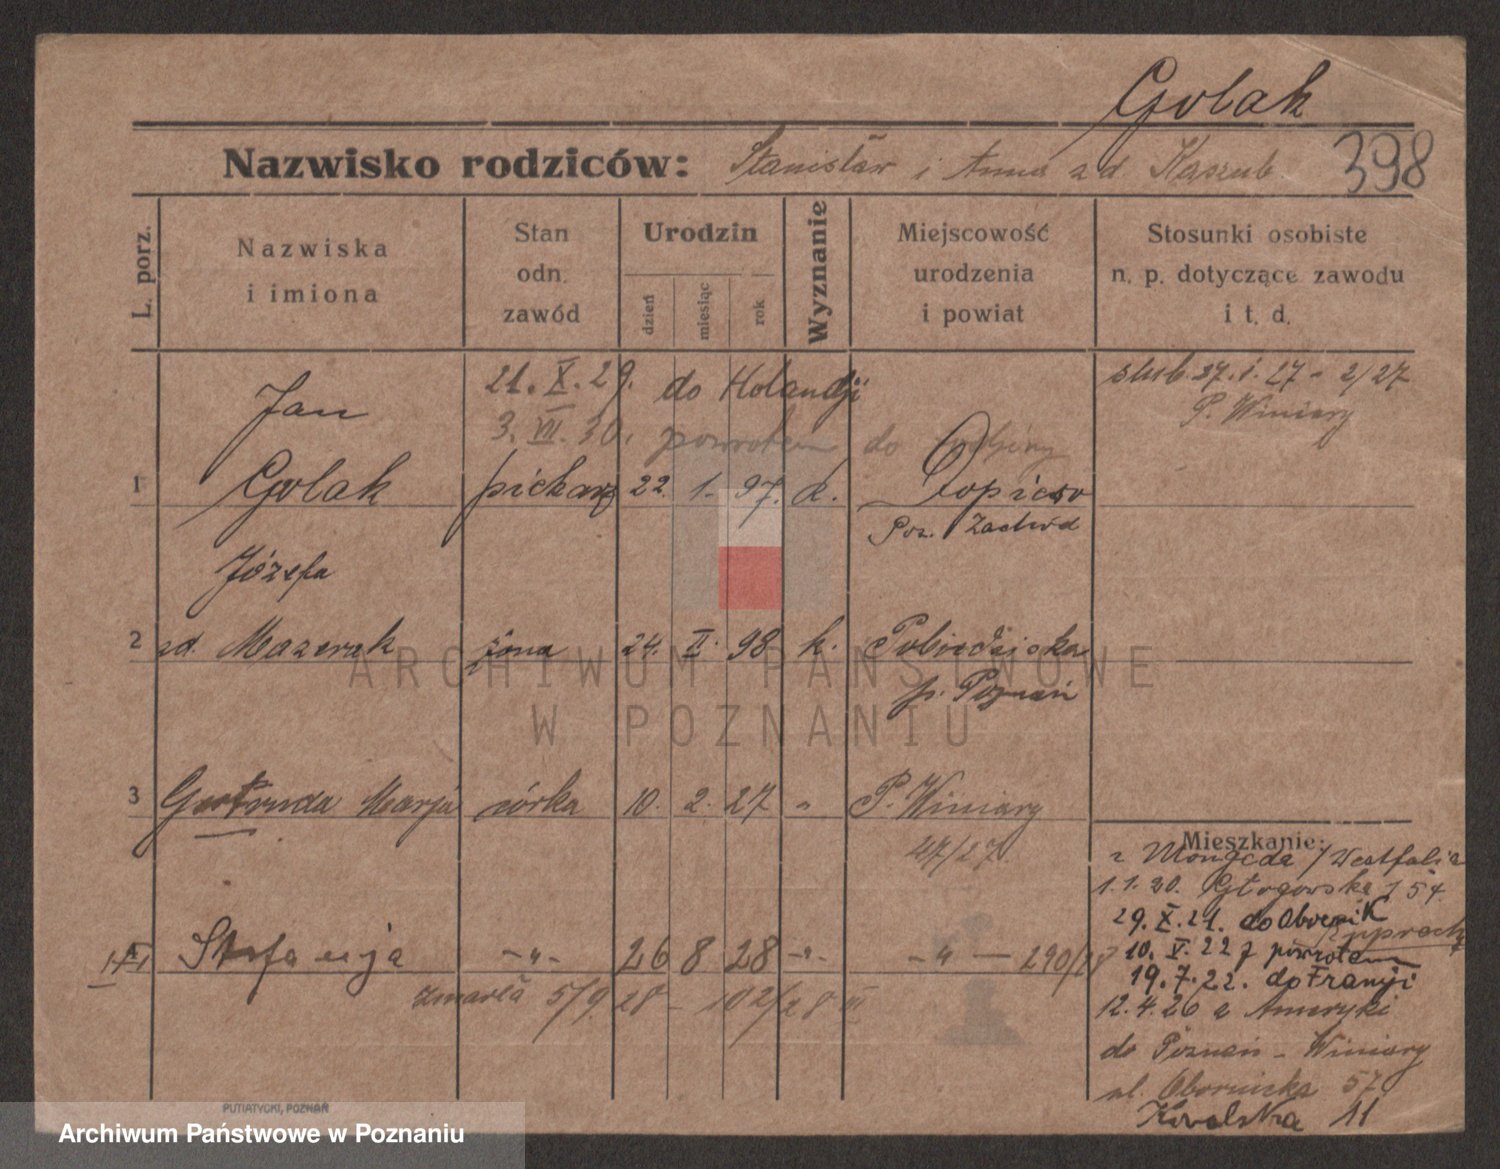 Golak
Nazwisko rodziców: Stanisław i Anna zd Kaszub 398
L. porz.
Nazwiska i imiona
Stan odn. zawód
Urodzin
dzień miesiąc rok
Wyznanie
Miejscowość urodzenia i powiat
Stosunki osobiste n. p. dotyczące zawodu i t. d.
21. X. 29. do Holandji
3. VII. 30. powrotem do
ślub. 27. 1. 27 - 2/27
P. Winiary
Jan
1 Golak piekarz 22. 1. 97. k. Dopiewo
Poz. Zachód
Józefa
2 zd. Mazurek żona 24. II. 98 k. Pobiedziska
p. Poznań
3 Gertruda Marja córka 10. 2. 27 " P. Winiary
27/27.
Stefanja -"- 26 8 28 -"- -"- — 290/28
zmarła 5/9. 28 - 102/28 III
Mieszkanie:
z /Westfalia
1. 1. 20. Głogowska 154
29. X. 21. do Obornik
10. V. 22 z powrotem
19. 7. 22. do Francji
12. 4. 26 z Ameryki
do Poznań - Winiary
ul. Obornicka 57
Kowalska 11
PUTIATYCKI, POZNAŃ
ARCHIWUM PAŃSTWOWE
W POZNANIU
Archiwum Państwowe w Poznaniu